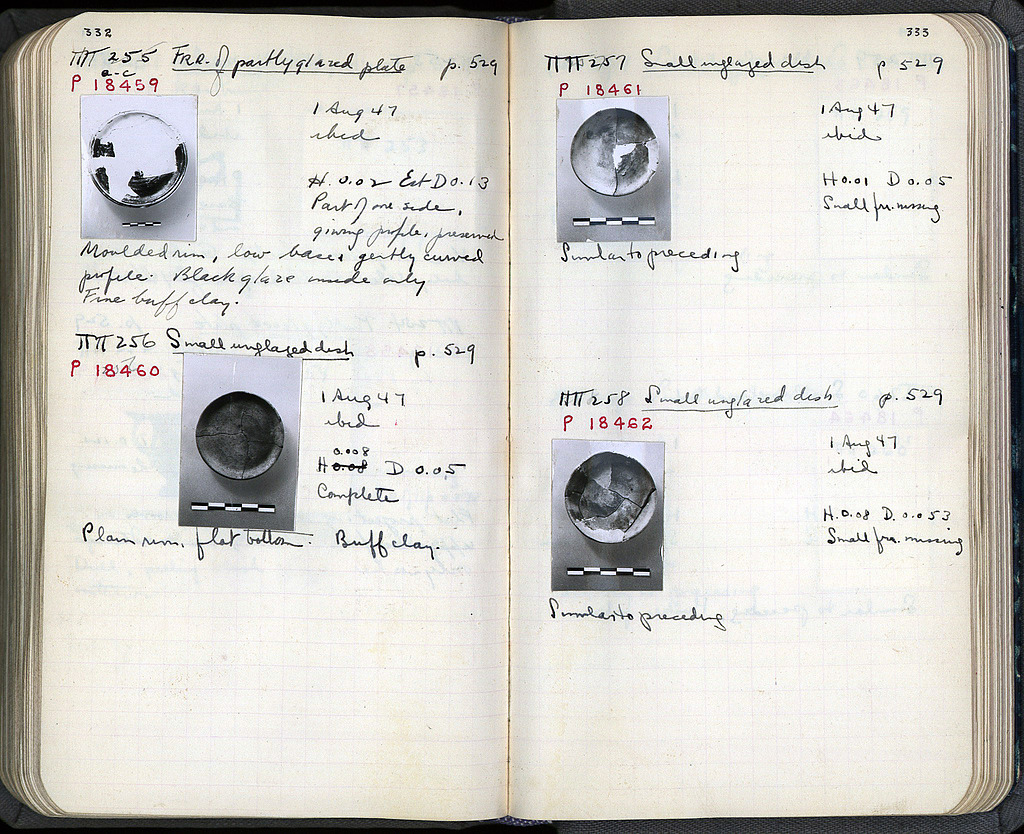 332
ΠΠ 255 Frr. of partly glazed plate p. 529
a-c
P 18459
1 Aug 47
ibid
H. 0.02 Est D 0.13
Part of one side,
giving profile, preserved
Moulded rim, low base, gently curved
profile. Black glaze inside only
Fine buff clay.
ΠΠ 256 Small unglazed dish p. 529
P 18460
1 Aug 47
ibid
0.008
H 0.08 D 0.05
Complete
Plain rim, flat bottom. Buff clay.
333
ΠΠ 257 Small unglazed dish p 529
P 18461
1 Aug 47
ibid
H 0.01 D 0.05
Small fr. missing
Similar to preceding
ΠΠ 258 Small unglazed dish p. 529
P 18462
1 Aug 47
ibid
H. 0.08 D. 0.053
Small frr. missing
Similar to preceding